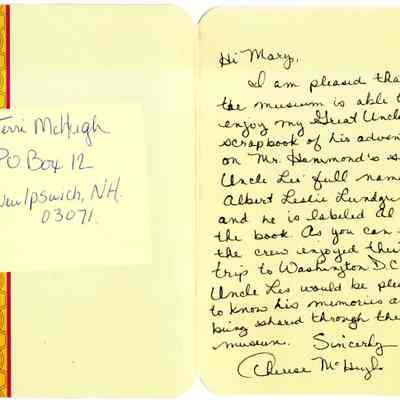 Terri McHugh
PO Box 12
New Ipswich, NH.
03071.
Hi Mary,
I am pleased tha
the museum is able t
enjoy my Great Uncle
scrapbook of his adven
on Mr. Hammond's s
Uncle Les' full nam
Albert Leslie Lundgr
and he is labeled Al
the book. As you can
the crew enjoyed thei
trip to Washington D.C
Uncle Les would be ple
to know his memories a
being shared through the
museum. Sincerely
McHugh